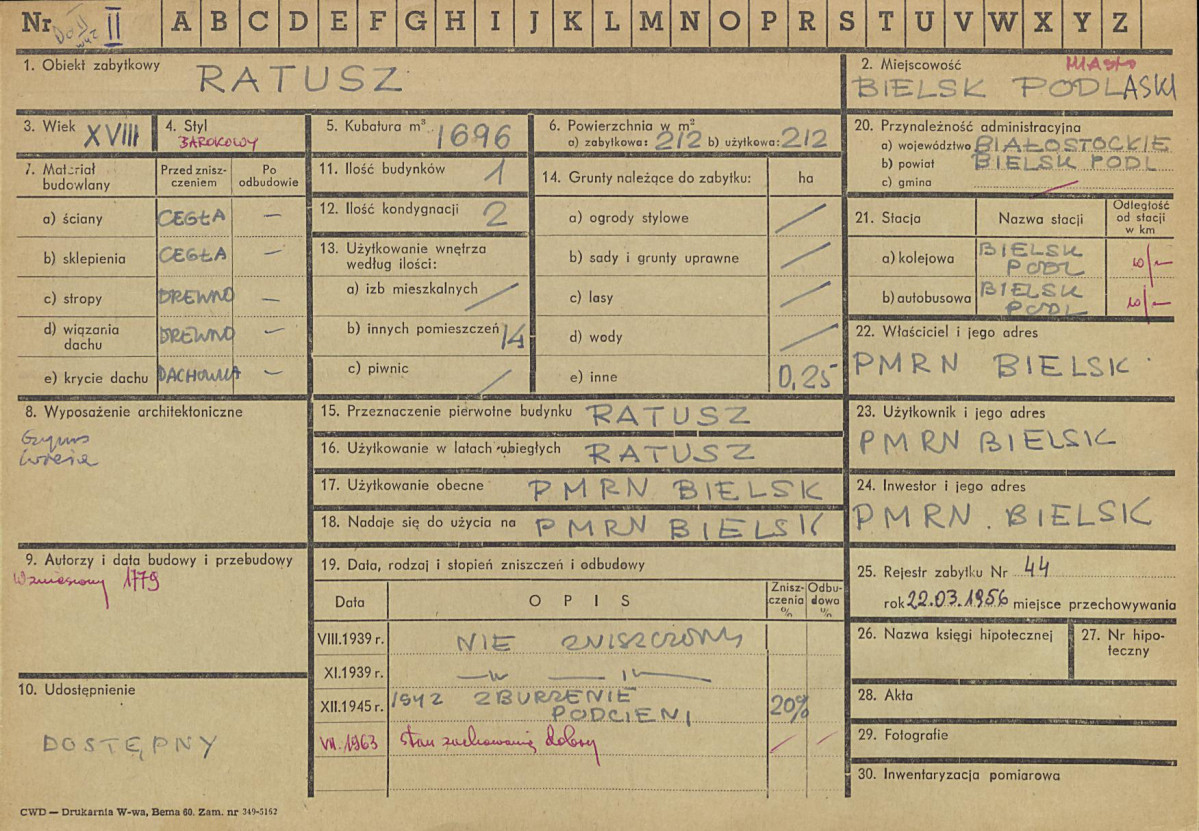 Nr II A B C D E F G H I J K L M N O P R S T U V W X Y Z
1. Obiekt zabytkowy
RATUSZ
2. Miejscowość
MIASTO
BIELSK PODLASKI
3. Wiek XVIII
4. Styl
BAROKOWY
5. Kubatura m³ 1696
6. Powierzchnia w m²
a) zabytkowa: 212 b) użytkowa: 212
20. Przynależność administracyjna
a) województwo BIAŁOSTOCKIE
b) powiat BIELSK PODL
c) gmina —
7. Materiał budowlany
Przed zniszczeniem
Po odbudowie
a) ściany CEGŁA —
b) sklepienia CEGŁA —
c) stropy DREWNO —
d) wiązania dachu DREWNO —
e) krycie dachu DACHOWKA —
11. Ilość budynków 1
12. Ilość kondygnacji 2
13. Użytkowanie wnętrza
według ilości:
a) izb mieszkalnych /
b) innych pomieszczeń 14
c) piwnic /
14. Grunty należące do zabytku: ha
a) ogrody stylowe /
b) sady i grunty uprawne /
c) lasy /
d) wody /
e) inne 0,25
21. Stacja
Nazwa stacji
Odległość
od stacji
w km
a) kolejowa BIELSK
PODL
w/m
b) autobusowa BIELSK
PODL
w/m
22. Właściciel i jego adres
PMRN BIELSK
8. Wyposażenie architektoniczne
Gzyms
15. Przeznaczenie pierwotne budynku RATUSZ
16. Użytkowanie w latach ubiegłych RATUSZ
17. Użytkowanie obecne PMRN BIELSK
18. Nadaje się do użycia na PMRN BIELSK
23. Użytkownik i jego adres
PMRN BIELSK
24. Inwestor i jego adres
PMRN. BIELSK
9. Autorzy i data budowy i przebudowy
Wzniesiony 1779
19. Data, rodzaj i stopień zniszczeń i odbudowy
Data
OPIS
Zniszczenia %
Odbudowa %
VIII.1939 r. NIE ZNISZCZONY
XI.1939 r. — " — " —
XII.1945 r. 1942 ZBURZENIE
PODCIENI
20%
VII.1963 stan zachowania dobry / /
25. Rejestr zabytku Nr 44
rok 22.03.1956 miejsce przechowywania
26. Nazwa księgi hipotecznej
27. Nr hipoteczny
28. Akta
29. Fotografie
30. Inwentaryzacja pomiarowa
10. Udostępnienie
DOSTĘPNY
CWD — Drukarnia W-wa, Bema 60. Zam. nr 349-5162